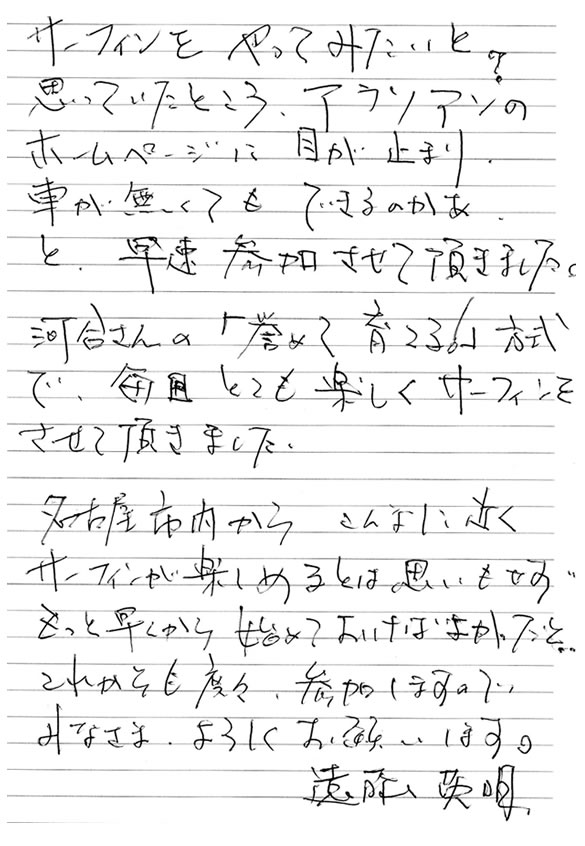 サーフィンを やってみたいと
思っていたところ、アラソアンの
ホームページに 目が 止まり、
車が 無くても できるのかぁ、
と、早速 参加 させて頂きました。
河合さんの 「誉めて 育てる!」方式
で、毎回 とても 楽しく サーフィンを
させて頂きました。
名古屋市内から こんなに近く
サーフィンが 楽しめるとは 思いもせず…
もっと 早くから 始めて おけばよかったと…
これからも 度々、参加しますので
みなさま、よろしくお願いします。
遠藤 英明